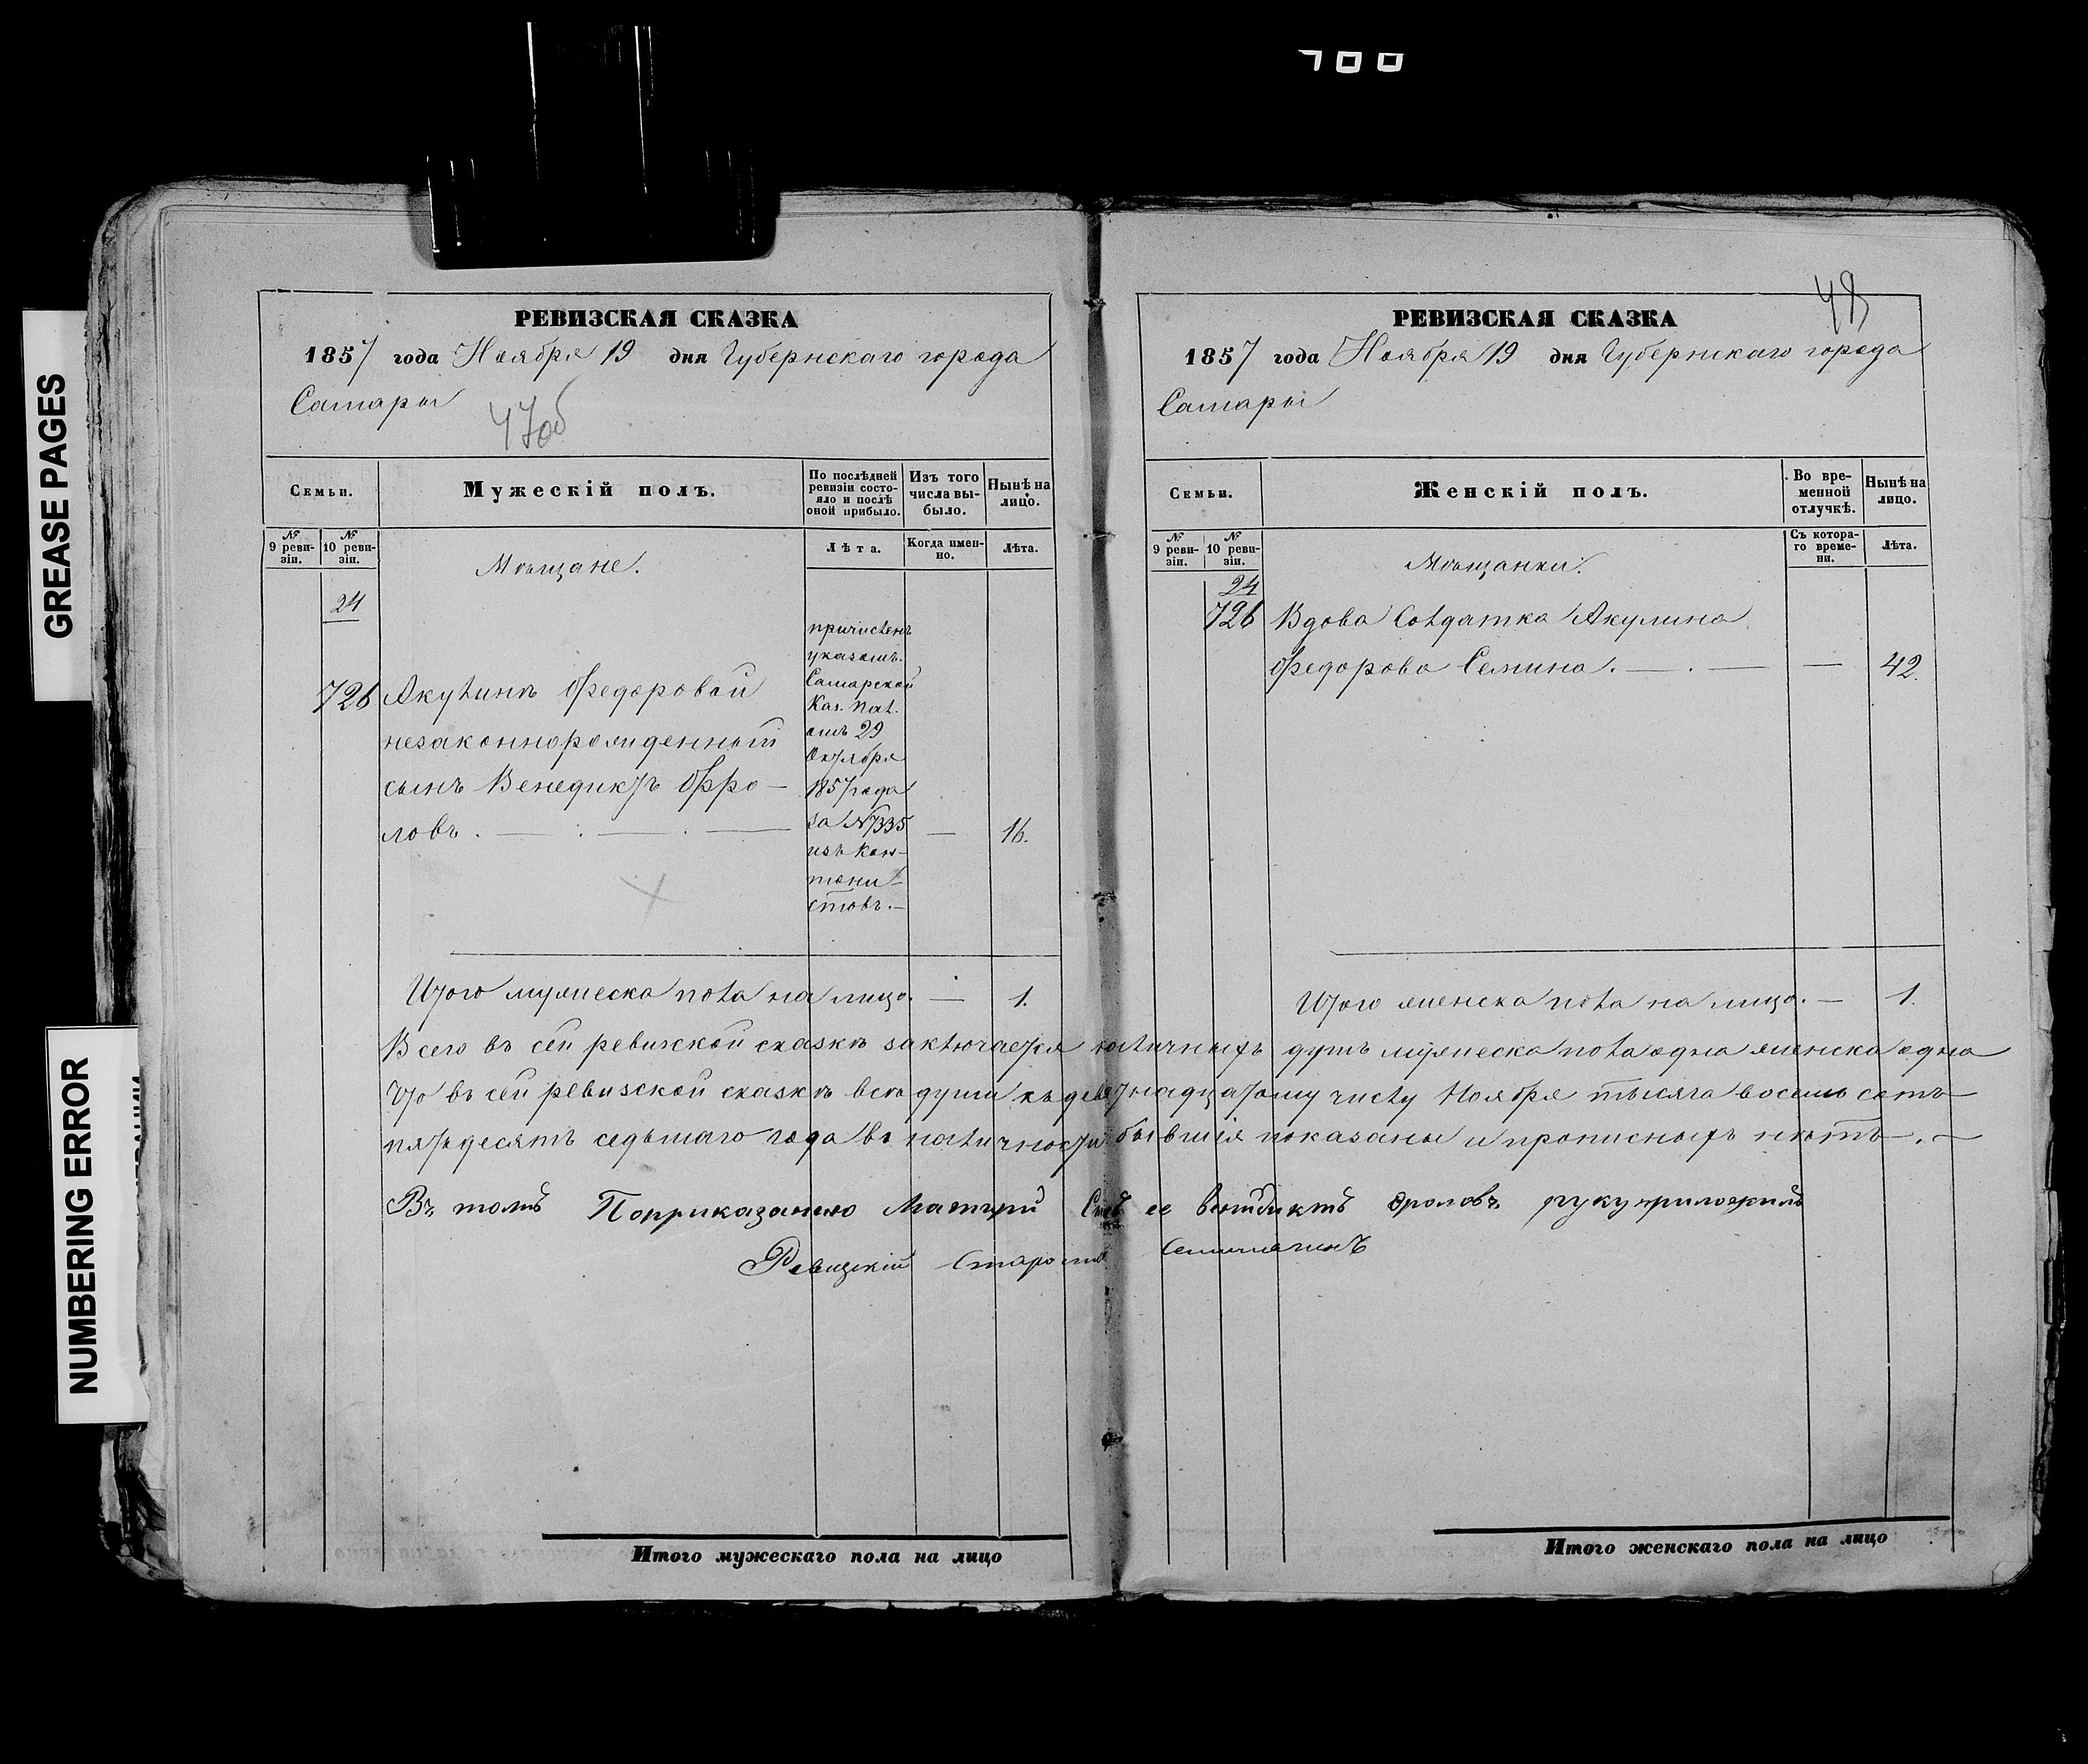 700
GREASE PAGES
NUMBERING ERROR
РЕВИЗСКАЯ СКАЗКА
1857 года Ноября 19 дня Губернскаго города
Самары
47об
Семьи.
Мужескій полъ.
По послѣдней ревизіи состояло и послѣ оной прибыло.
Изъ того числа выбыло.
Нынѣ на лицо.
№ 9 ревизіи.
№ 10 ревизіи.
Лѣта.
Когда именно.
Лѣта.
Мѣщане.
24
726
Акулинѣ Федоровой
незаконнорожденный
сынъ Венедиктъ Фро-
ловъ.
причисленъ
указомъ
Самарской
Каз. Пал.
отъ 29
Октября
1857 года
за № 7335
изъ кан-
тони-
стовъ.—
—
16.
Итого мужеска пола на лицо. — 1.
48
РЕВИЗСКАЯ СКАЗКА
1857 года Ноября 19 дня Губернскаго города
Самары
Семьи.
Женскій полъ.
Во временной отлучкѣ.
Нынѣ на лицо.
№ 9 ревизіи.
№ 10 ревизіи.
Съ котораго времени.
Лѣта.
Мѣщанки.
24
726
Вдова Солдатка Акулина
Федорова Семина. — . — — 42.
Итого женска пола на лицо. — 1.
Всего въ сей ревизской сказкѣ заключается наличныхъ душъ мужеска пола одна женска одна
Что въ сей ревизской сказкѣ всѣ души къ девятнадцатому числу Ноября тысяча восемь сотъ
пятьдесятъ седьмаго года въ наличности бывшія показаны и прописныхъ нѣтъ.—
Въ томъ Поприказанию Матери Сынъ ее Венидиктъ Фроловъ руку приложилъ
Ревизкій Староста
Итого мужескаго пола на лицо
Итого женскаго пола на лицо